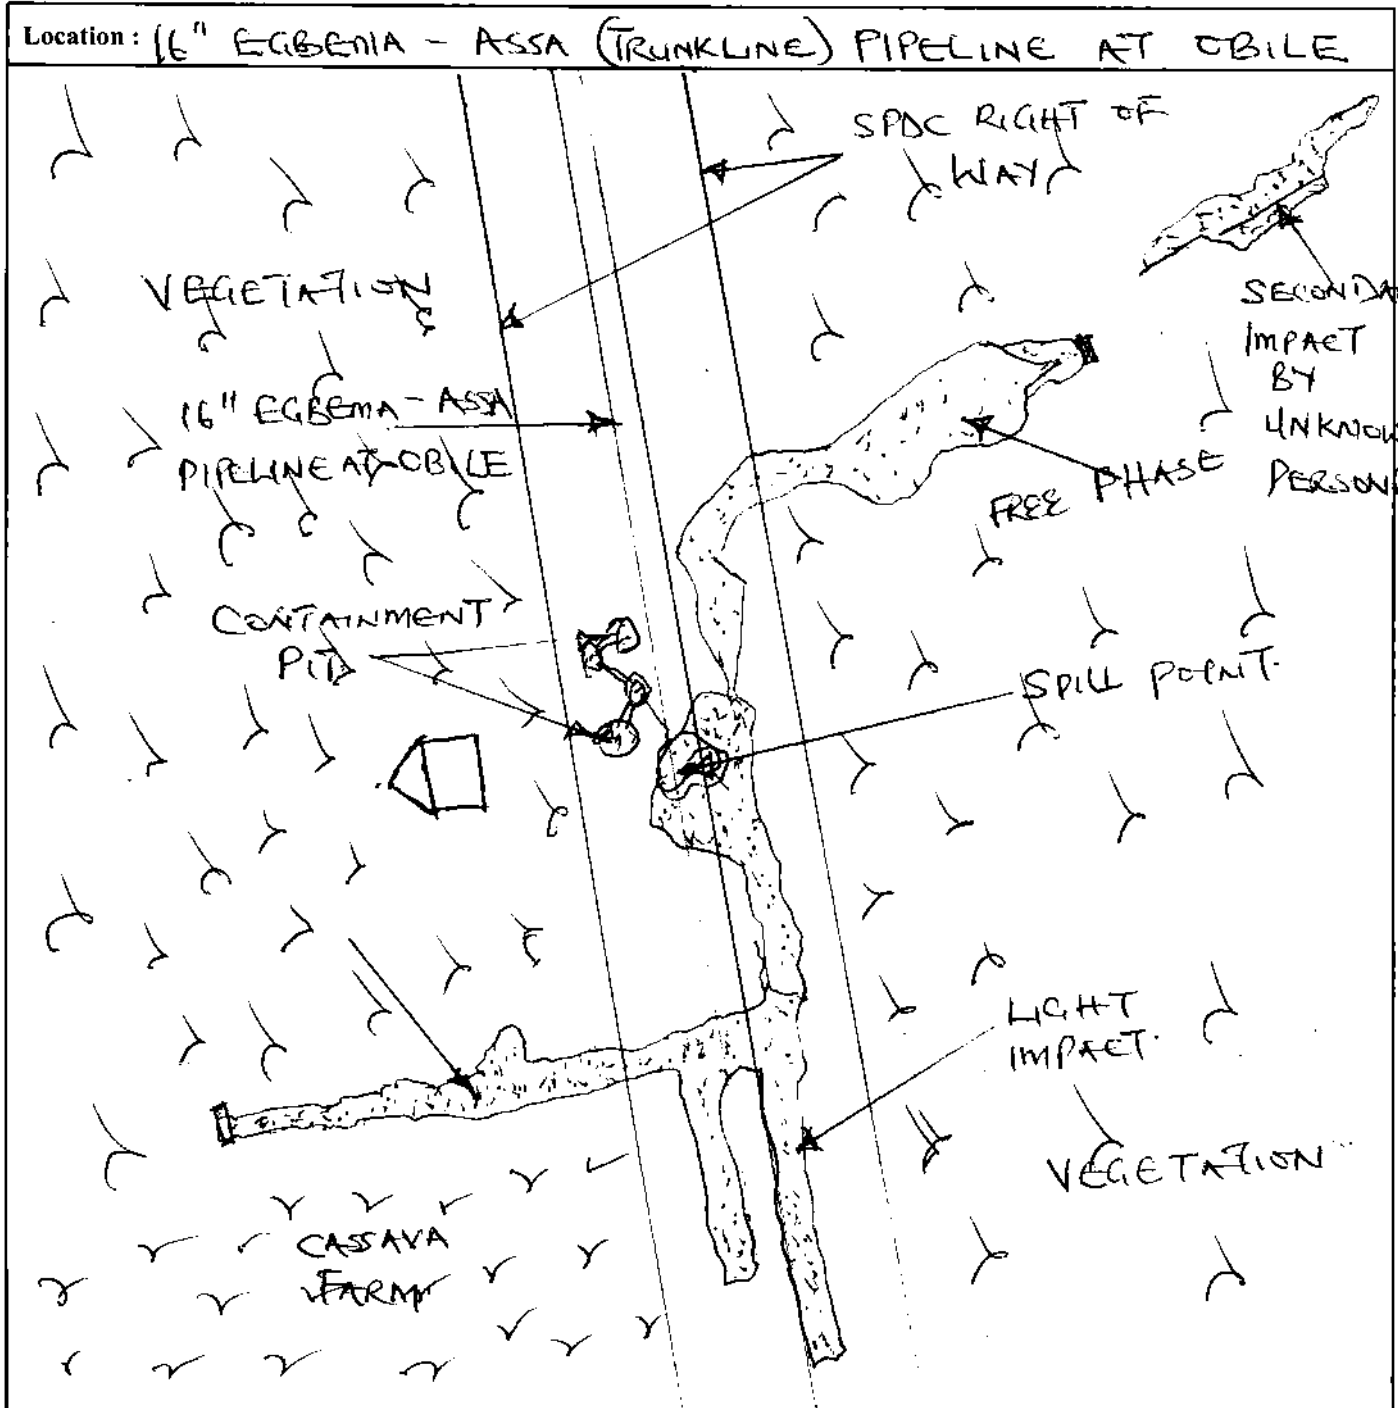 Location : 16" EGBEMA - ASSA (TRUNKLINE) PIPELINE AT OBILE
SPDC RIGHT OF
WAY
VEGETATION
SECONDA
IMPACT
BY
UNKNOW
PERSON
16" EGBEMA - ASSA
PIPELINE AT OBILE
FREE PHASE
CONTAINMENT
PIT
SPILL POINT.
LIGHT
IMPACT.
VEGETATION
CASSAVA
FARM